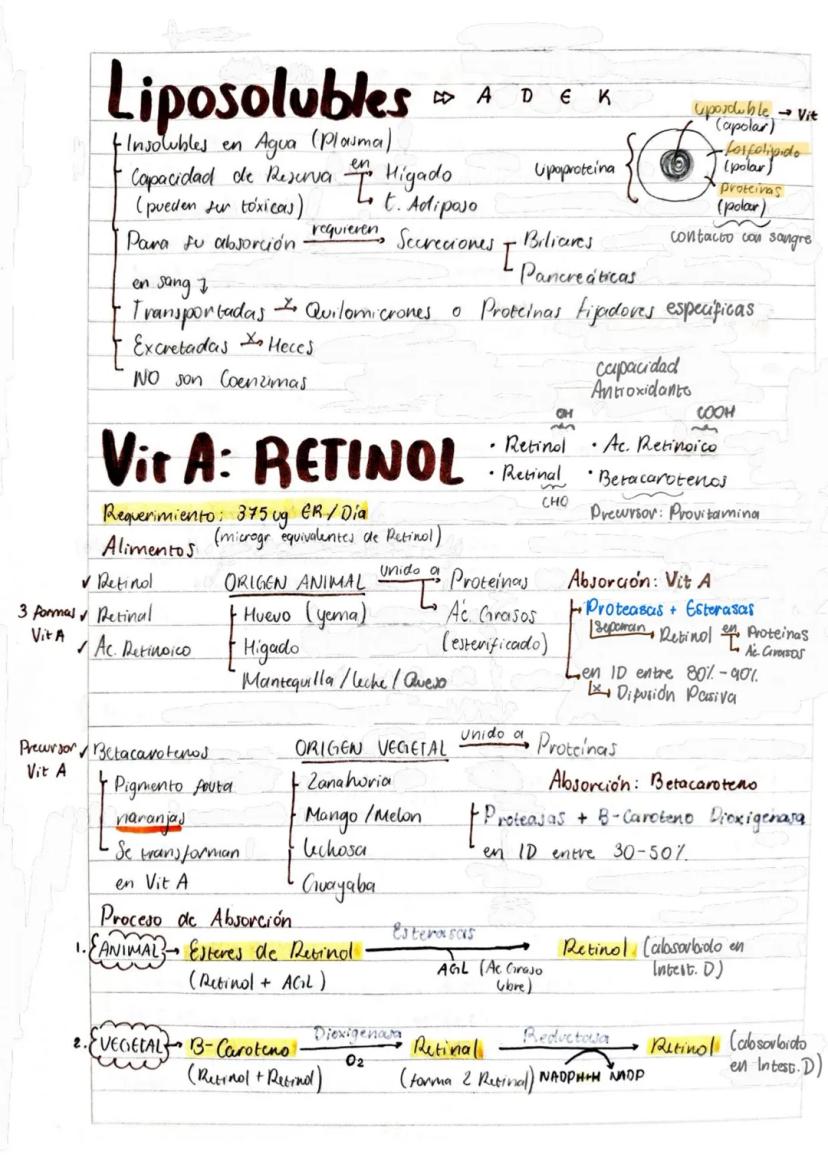 Liposolubles ⇨ A D E K
Liposoluble → Vit
(apolar)
fosfolípido
(polar)
Proteínas
(polar)
contacto con sangre
Lipoproteína
Insolubles en Agua (Plasma)
Capacidad de Reserva en Hígado
t. Adiposo
(pueden ser tóxicas)
Para su absorción requieren → Secreciones Biliares
Pancreáticas
en sang
Transportadas x→ Quilomicrones o Proteínas fijadores específicas
Excretadas x→ Heces
NO son Coenzimas
Capacidad
Antioxidante
OH COOH
Vit A: RETINOL
• Retinol • Ac. Retinoico
• Retinal • Betacarotenos
CHO Precursor: Provitamina
Requerimiento: 375 ug ER/Día
(microgr equivalentes de Retinol)
Alimentos
3 formas Vit A
✓ Retinol
✓ Retinal
✓ Ac. Retinoico
ORIGEN ANIMAL unido a → Proteínas
Ác. Grasos
(esterificado)
Huevo (yema)
Hígado
Mantequilla/leche/Queso
Absorción: Vit A
Proteasas + Esterasas
separan → Retinol en Proteínas
Ac Grasos
en ID entre 80% - 90%
x→ Difusión Pasiva
Precursor Vit A
✓ Betacarotenos
Pigmento
naranjas
Se transforman
en Vit A
ORIGEN VEGETAL unido a → Proteínas
Zanahoria
Mango/Melon
Lechosa
Guayaba
Absorción: Betacaroteno
Proteasas + B-Caroteno Dioxigenasa
en ID entre 30-50%
Proceso de Absorción
1. ANIMAL → Esteres de Retinol Esterasas → Retinol (absorbido en
Intest. D)
(Retinol + AGL) AGL (Ac Graso
libre)
2. VEGETAL → B-Caroteno Dioxigenasa → Retinal Reductasa → Retinol (absorbido
en Intest. D)
O2
(Retinol + Retinol) (forma 2 Retinal) NADPH+H NADP